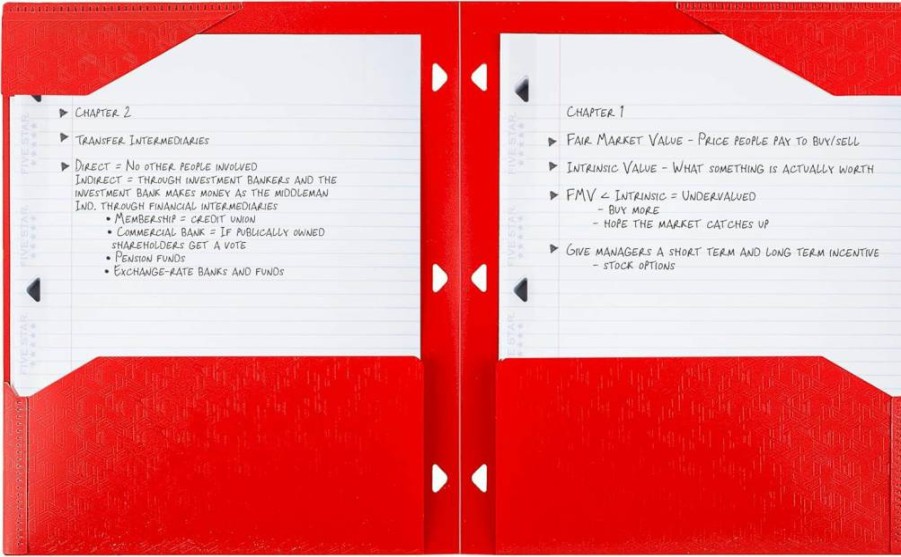 CHAPTER 2
TRANSFER INTERMEDIARIES
DIRECT = NO OTHER PEOPLE INVOLVED
INDIRECT = THROUGH INVESTMENT BANKERS AND THE
INVESTMENT BANK MAKES MONEY AS THE MIDDLEMAN
IND. THROUGH FINANCIAL INTERMEDIARIES
• MEMBERSHIP = CREDIT UNION
• COMMERCIAL BANK = IF PUBLICALLY OWNED
SHAREHOLDERS GET A VOTE
• PENSION FUNDS
• EXCHANGE-RATE BANKS AND FUNDS
FIVE STAR
FIVE STAR
CHAPTER 1
FAIR MARKET VALUE - PRICE PEOPLE PAY TO BUY/SELL
INTRINSIC VALUE - WHAT SOMETHING IS ACTUALLY WORTH
FMV < INTRINSIC = UNDERVALUED
- BUY MORE
- HOPE THE MARKET CATCHES UP
GIVE MANAGERS A SHORT TERM AND LONG TERM INCENTIVE
- STOCK OPTIONS
FIVE STAR